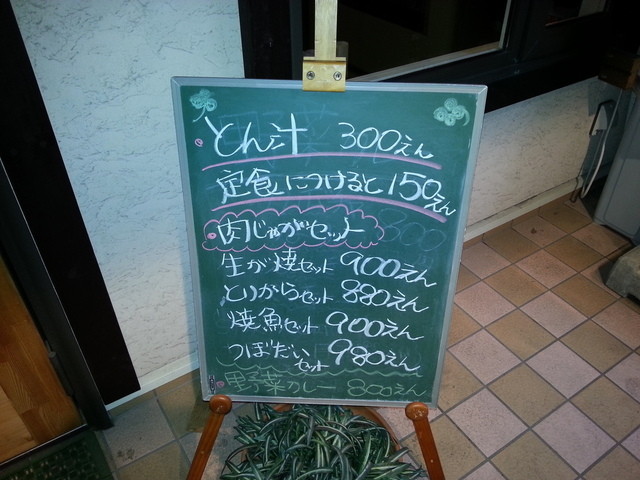 とん汁 300えん
定食につけると150えん
肉じゃがセット 800
生が焼セット 900えん
とりからセット 880えん
焼魚セット 900えん
つぼだいセット 980えん
野菜カレー 800えん